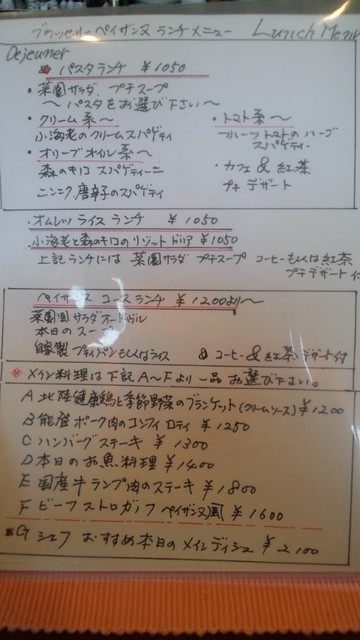 ブラッセリーペイザンヌ ランチメニュー Lunch Menu
Dejeuner
※ パスタランチ ¥1050
・菜園サラダ、プチスープ
〜パスタをお選び下さい〜
・クリーム系〜
小海老のクリームスパゲティ
・オリーブオイル系〜
森のキノコ スパゲティーニ
ニンニク、唐辛子のスパゲティ
・トマト系〜
フルーツトマトのハーブ
スパゲティ・
・カフェ & 紅茶
プチデザート
・オムレツライスランチ ¥1050
・小海老と森のキノコのリゾットドリア ¥1050
上記ランチには 菜園サラダ プチスープ コーヒーもしくは紅茶
プチデザート付
ペイザンヌ コースランチ ¥1200より〜
菜園風サラダオードヴル
本日のスープ
自家製 プティパンもしくはライス & コーヒー&紅茶デザート付
※ メイン料理は下記A〜Fより一品お選び下さい。
A 北陸健康鶏と季節野菜のブランケット(クリームソース) ¥1200
B 能登ポーク肉のコンフィ ロティ ¥1250
C ハンバーグステーキ ¥1300
D 本日のお魚料理 ¥1400
E 国産牛ランプ肉のステーキ ¥1800
F ビーフストロガノフ ペイザンヌ風 ¥1600
※G シェフおすすめ本日のメインディシュ ¥2,100